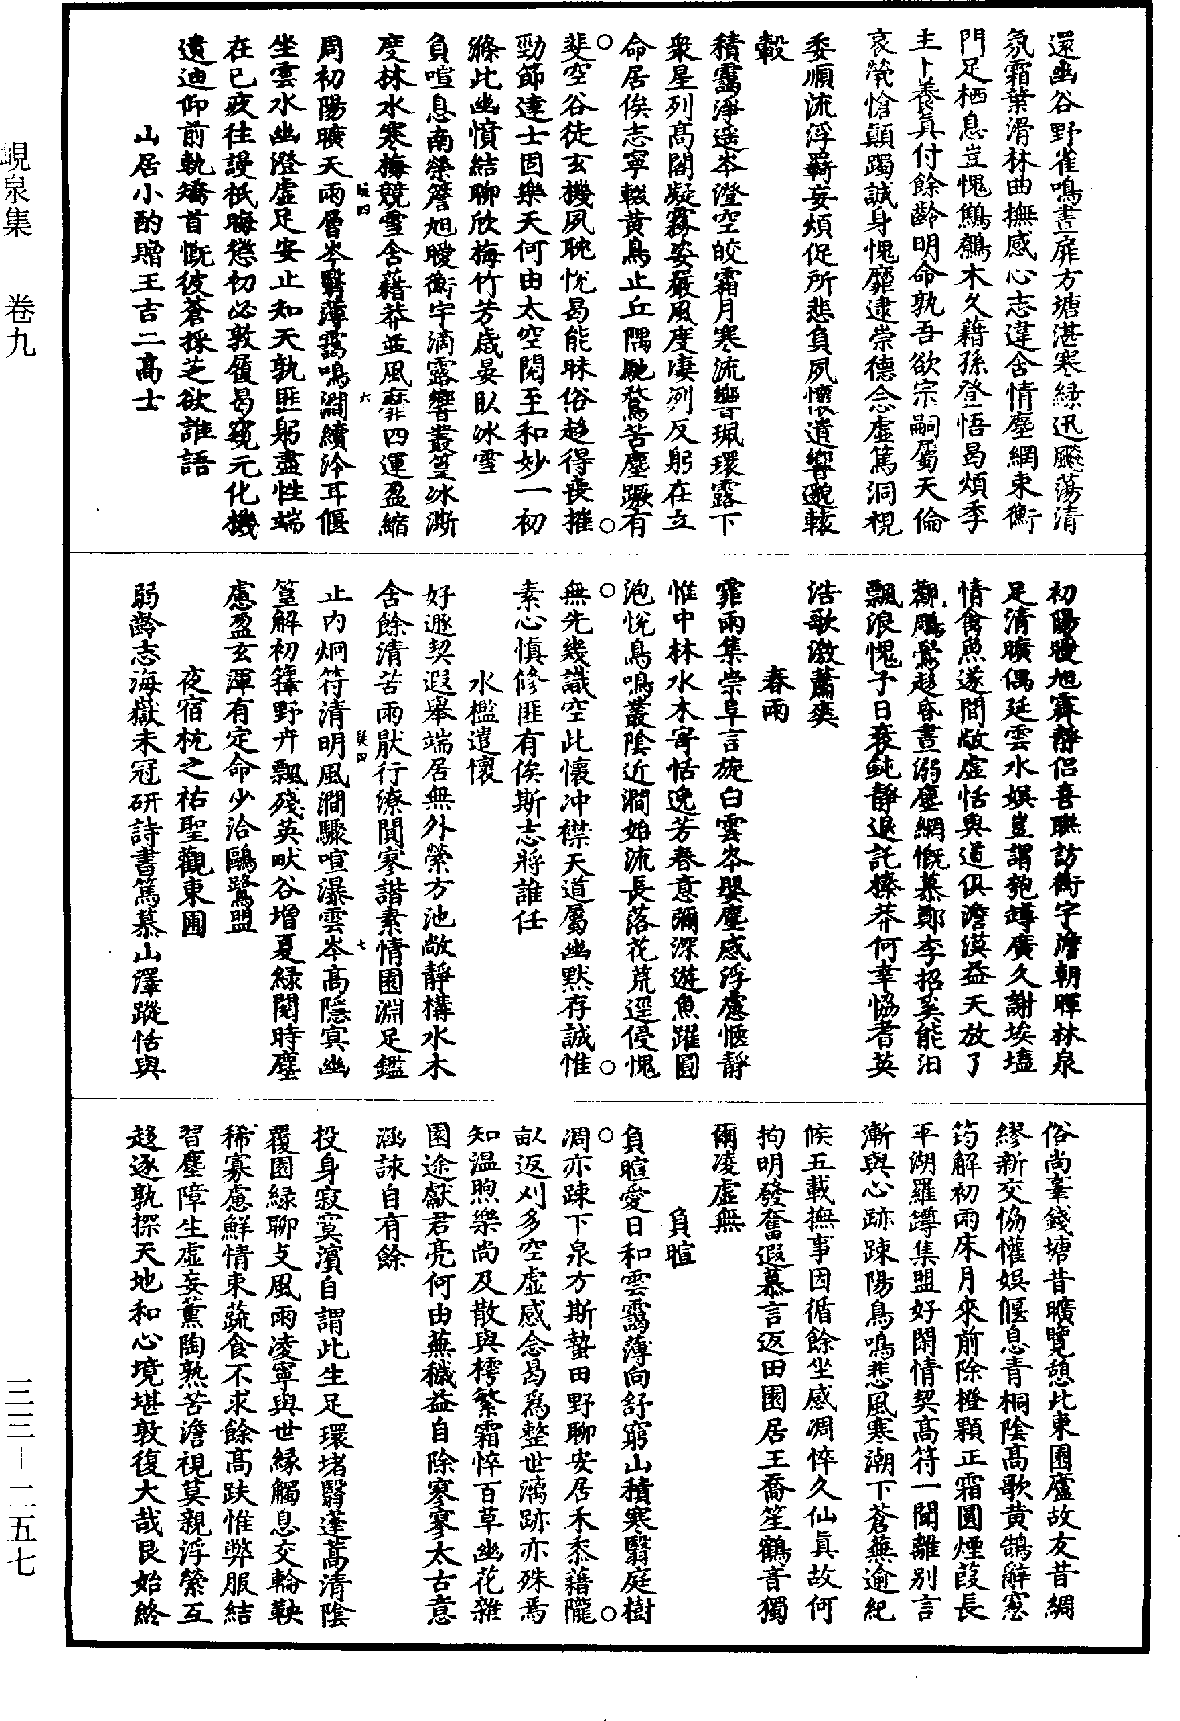 還幽谷野雀鳴晝扉方塘湛寒綠迅飈蕩清
氛霜葉滑林曲撫感心志違含情塵網束衡
門足栖息豈愧鷦鷯木久藉孫登悟曷煩季
主卜養眞付餘齡明命孰吾欲宗嗣屬天倫
哀煢愴顛躅誠身愧靡逮崇德念虛篤洞視
委順流浮羇妄煩促所悲負夙懷遺響邈軼
轂
積靄淨遥岑澄空皎霜月寒流響珮環露下
衆星列高閣凝霧姿嚴風度凄冽反躬在立
命居俟志寧輟黃鳥止丘隅馳騖苦塵蹶有
斐空谷徒玄機夙耽悅曷能昧俗趍得喪摧
勁節達士固樂天何由太空閱至和妙一初
滌此幽憤結聊欣梅竹芳歲晏臥冰雪
負喧息南榮簷旭曖衡宇滴露響叢篁冰澌
度林水寒梅競雪舍藉莽並風靡四運盈縮
周初陽曠天雨層岑翳薄靄鳴澗續泠耳偃
坐雲水幽澄虛足安止知天孰匪躬盡性端
在已疚往謾祇晦愆初必敦履曷窺元化機
遺迪仰前軌矯首慨彼蒼採芝欲誰語
山居小酌贈王吉二高士
初陽曖旭霽靜侶喜聯訪衡宇澹朝暉林泉
足清曠偶延雲水娛豈謂匏罇廣久謝埃壒
情禽魚遂間敞虛恬與道俱澹漠益天放了
觀鵬鷃趍昏晝溺塵網慨慕鄭李招奚能汨
飄浪愧予日衰鈍靜退託榛莽何幸恊耆英
浩歌激蕭爽
春雨
霏雨集崇阜言旋白雲岑嬰塵感浮慮愜靜
惟中林水木寄恬逸芳春意彌深遊魚躍圓
泡悅鳥鳴叢陰近澗始流長落花荒逕侵愧
無先幾識空此懷冲襟天道屬幽黙存誠惟
素心慎修匪有俟斯志將誰任
水檻遣懷
好遯契遐舉端居無外縈方池敞靜構水木
含餘清苦雨猒行潦閒寥諧素情囿淵足鑑
止内炯符清明風澗驟喧瀑雲岑高隱寅幽
篁解初籜野卉飄殘英畎谷增夏綠閱時塵
慮盈玄渾有定命少洽鷗鷺盟
夜宿杭之祐聖觀東圃
弱齡志海嶽未冠研詩書篤慕山澤蹤恬與
俗尚辜錢塘昔曠覽憩此東圃廬故友昔綢
繆新交恊懽娛偃息青桐陰高歌黃鵠辭窓
筠解初雨床月來前除橙顆正霜圓煙葭長
平湖羅罇集盟好閑情契高符一聞離別言
漸與心跡踈陽鳥鳴悲風寒潮下蒼蕪逾紀
候五載撫事因循餘坐感凋悴久仙眞故何
拘明發奮遐慕言返田園居王喬笙鶴音獨
爾凌虛無
負暄
負暄愛日和雲靄薄向舒窮山積寒翳庭樹
凋亦踈下泉方斯蟄田野聊安居禾黍藉隴
畝返刈多空虛感念曷爲整世漓跡亦殊焉
知温煦樂尚及散與樗繁霜悴百草幽花雜
園途獻君亮何由蕪穢益自除寥寥太古意
涵詠自有餘
投身寂寞濱自謂此生足環堵翳蓬蒿清陰
覆園綠聊支風雨凌寧與世緣觸息交輪鞅
稀寡慮鮮情束蔬食不求餘高趺惟弊服結
習塵障生虛妄薰陶熟苦澹視莫親浮縈互
趍逐孰探天地和心境堪敦復大哉艮始終
峴泉集
卷九
三三-二五七